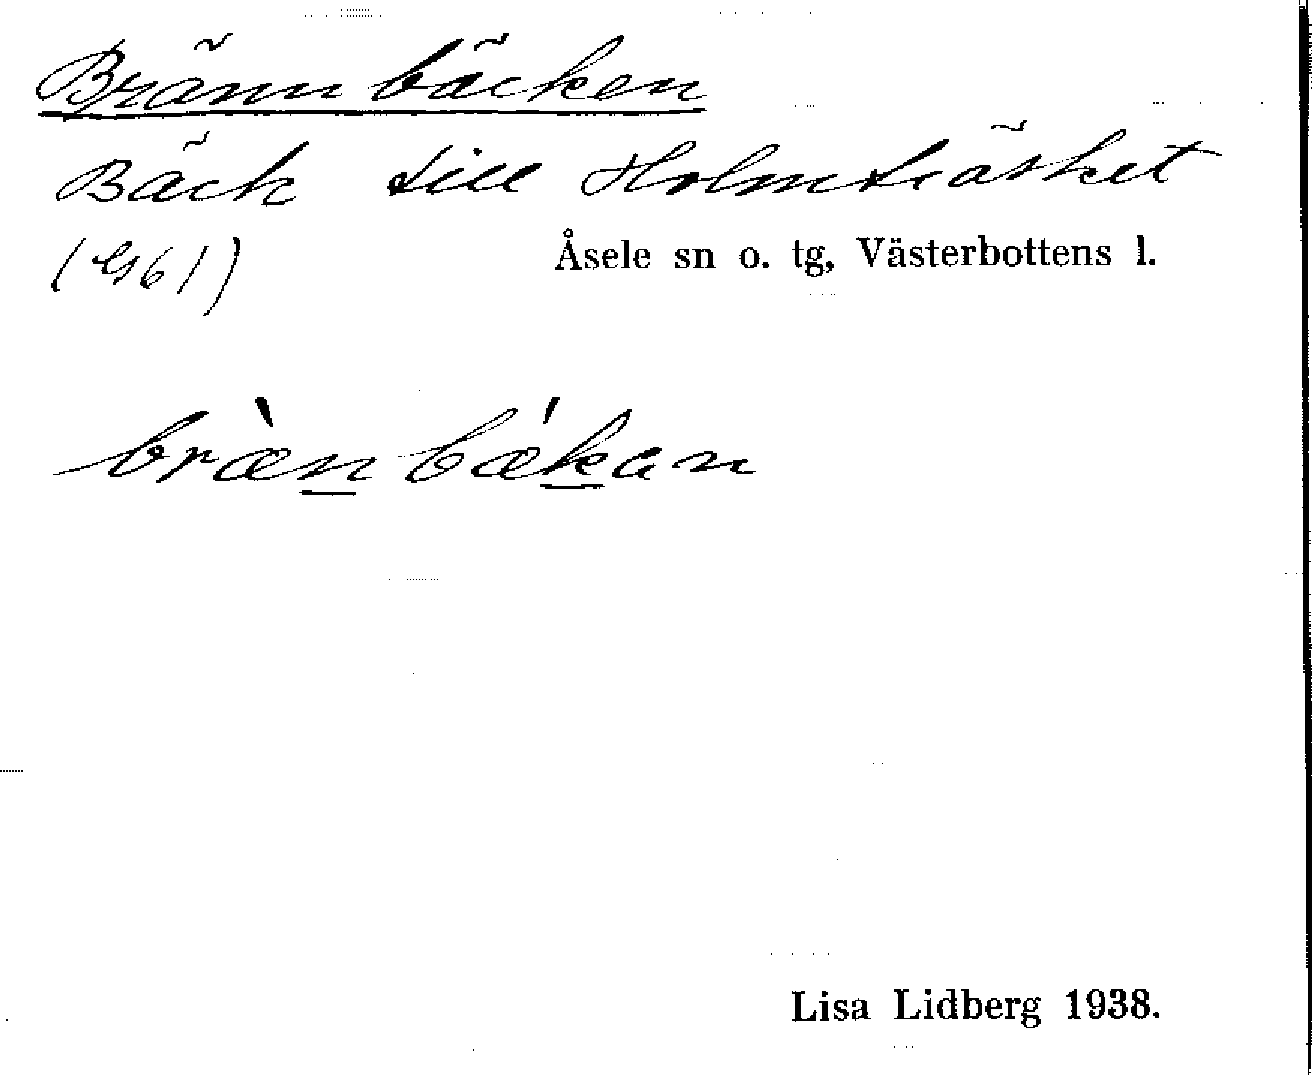 Brännbäcken
Bäck till Holmträsket
(G61) Åsele sn o. tg, Västerbottens l.
bræ̀nbǽkan
Lisa Lidberg 1938.